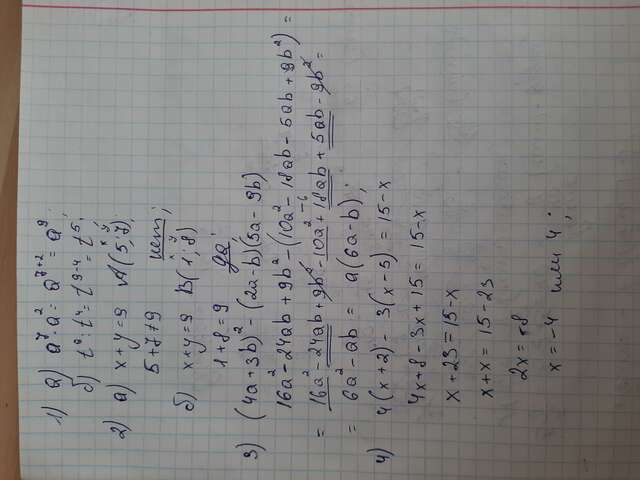 1) а) a⁷·a² = a⁷⁺² = a⁹;
б) t⁹ : t⁴ = t⁹⁻⁴ = t⁵;
2) а) x+y=9 A(5;7)
5+7≠9 нет;
б) x+y=9 B(1;8)
1+8=9 да;
3) (4a+3b)² - (2a-b)(5a-9b)
16a²-24ab+9b²-(10a²-18ab-5ab+9b²)=
=16a²-24ab+9b²-10a²+18ab+5ab-9b²=
=6a²-ab = a(6a-b);
4) 4(x+2)-3(x-5)=15-x
4x+8-3x+15=15-x
x+23=15-x
x+x=15-23
2x=-8
x=-4 или 4;